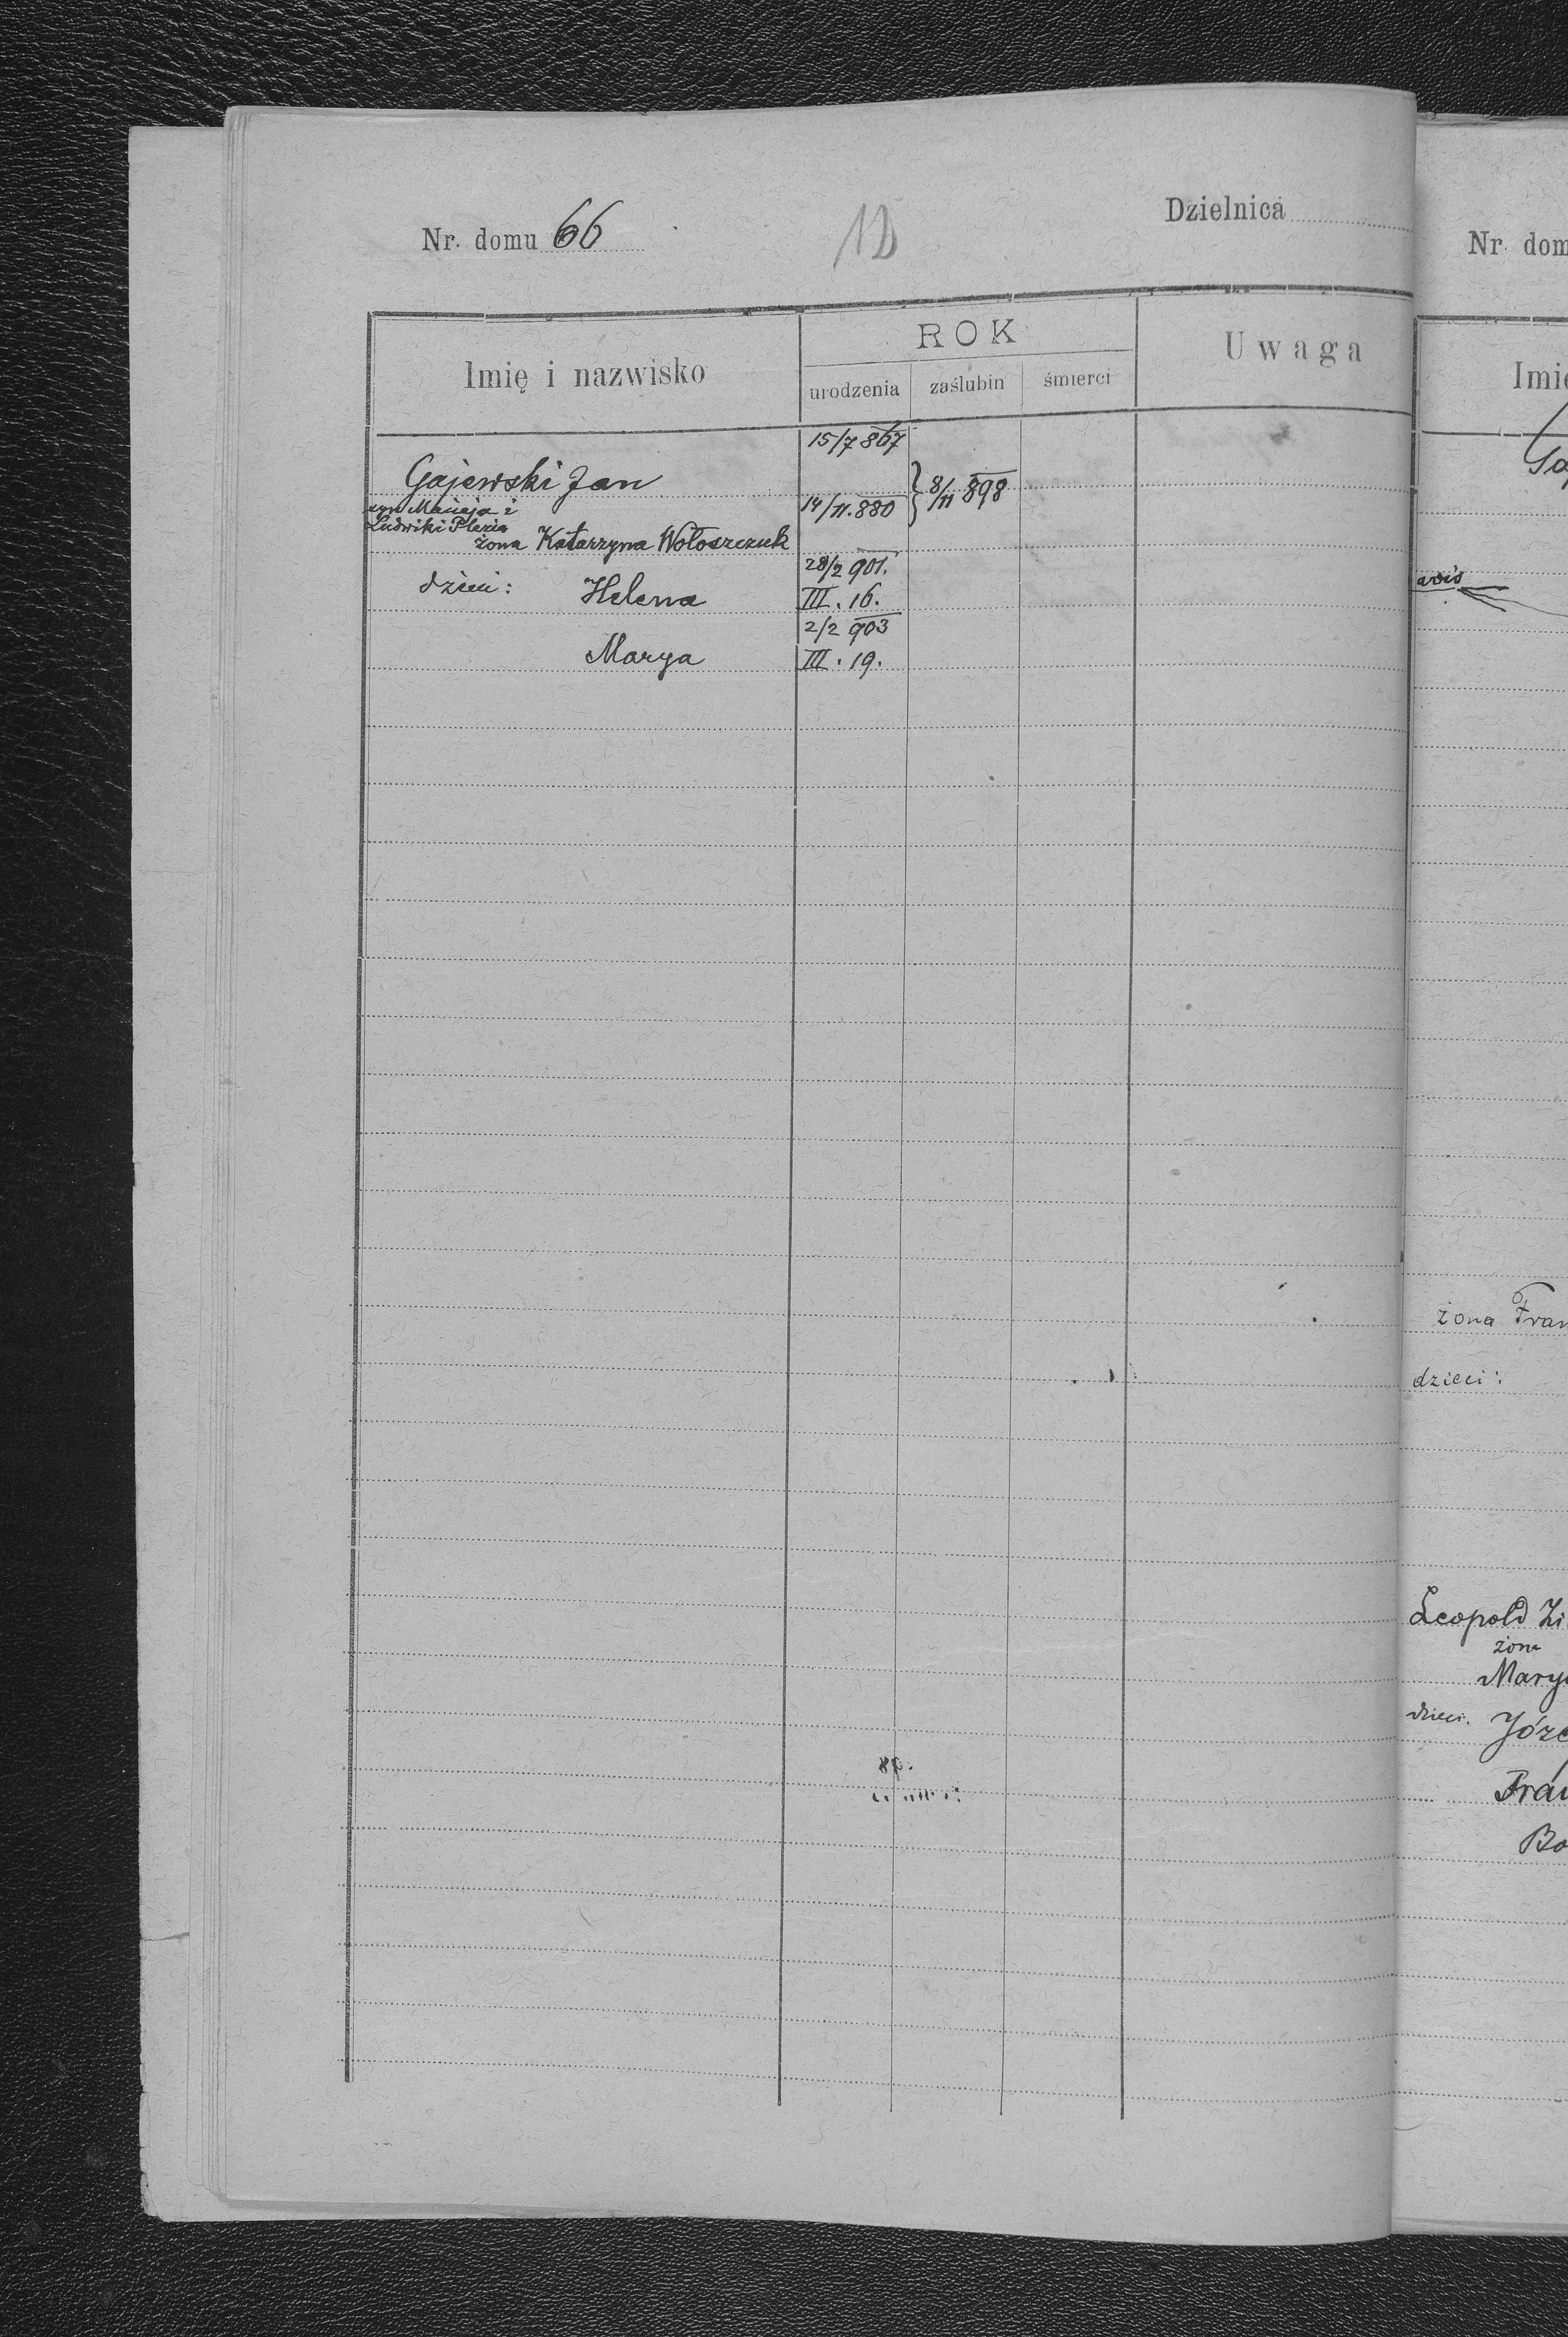 Nr. domu 66
Dzielnica
Imię i nazwisko
ROK
urodzenia
zaślubin
śmierci
Uwaga
15/7 867
Gajewski Jan
8/11 898
syn Macieja i
14/11.880
Ludwiki Plezia
żona Katarzyna Wołoszczuk
28/2 901.
dzieci: Helena
III. 16.
2/2 903
Marya
III. 19.
Nr. dom
Imię
żona Fran
dzieci:
Leopold Zi
żona
Marya
dzieci. Józe
Fra
Bo